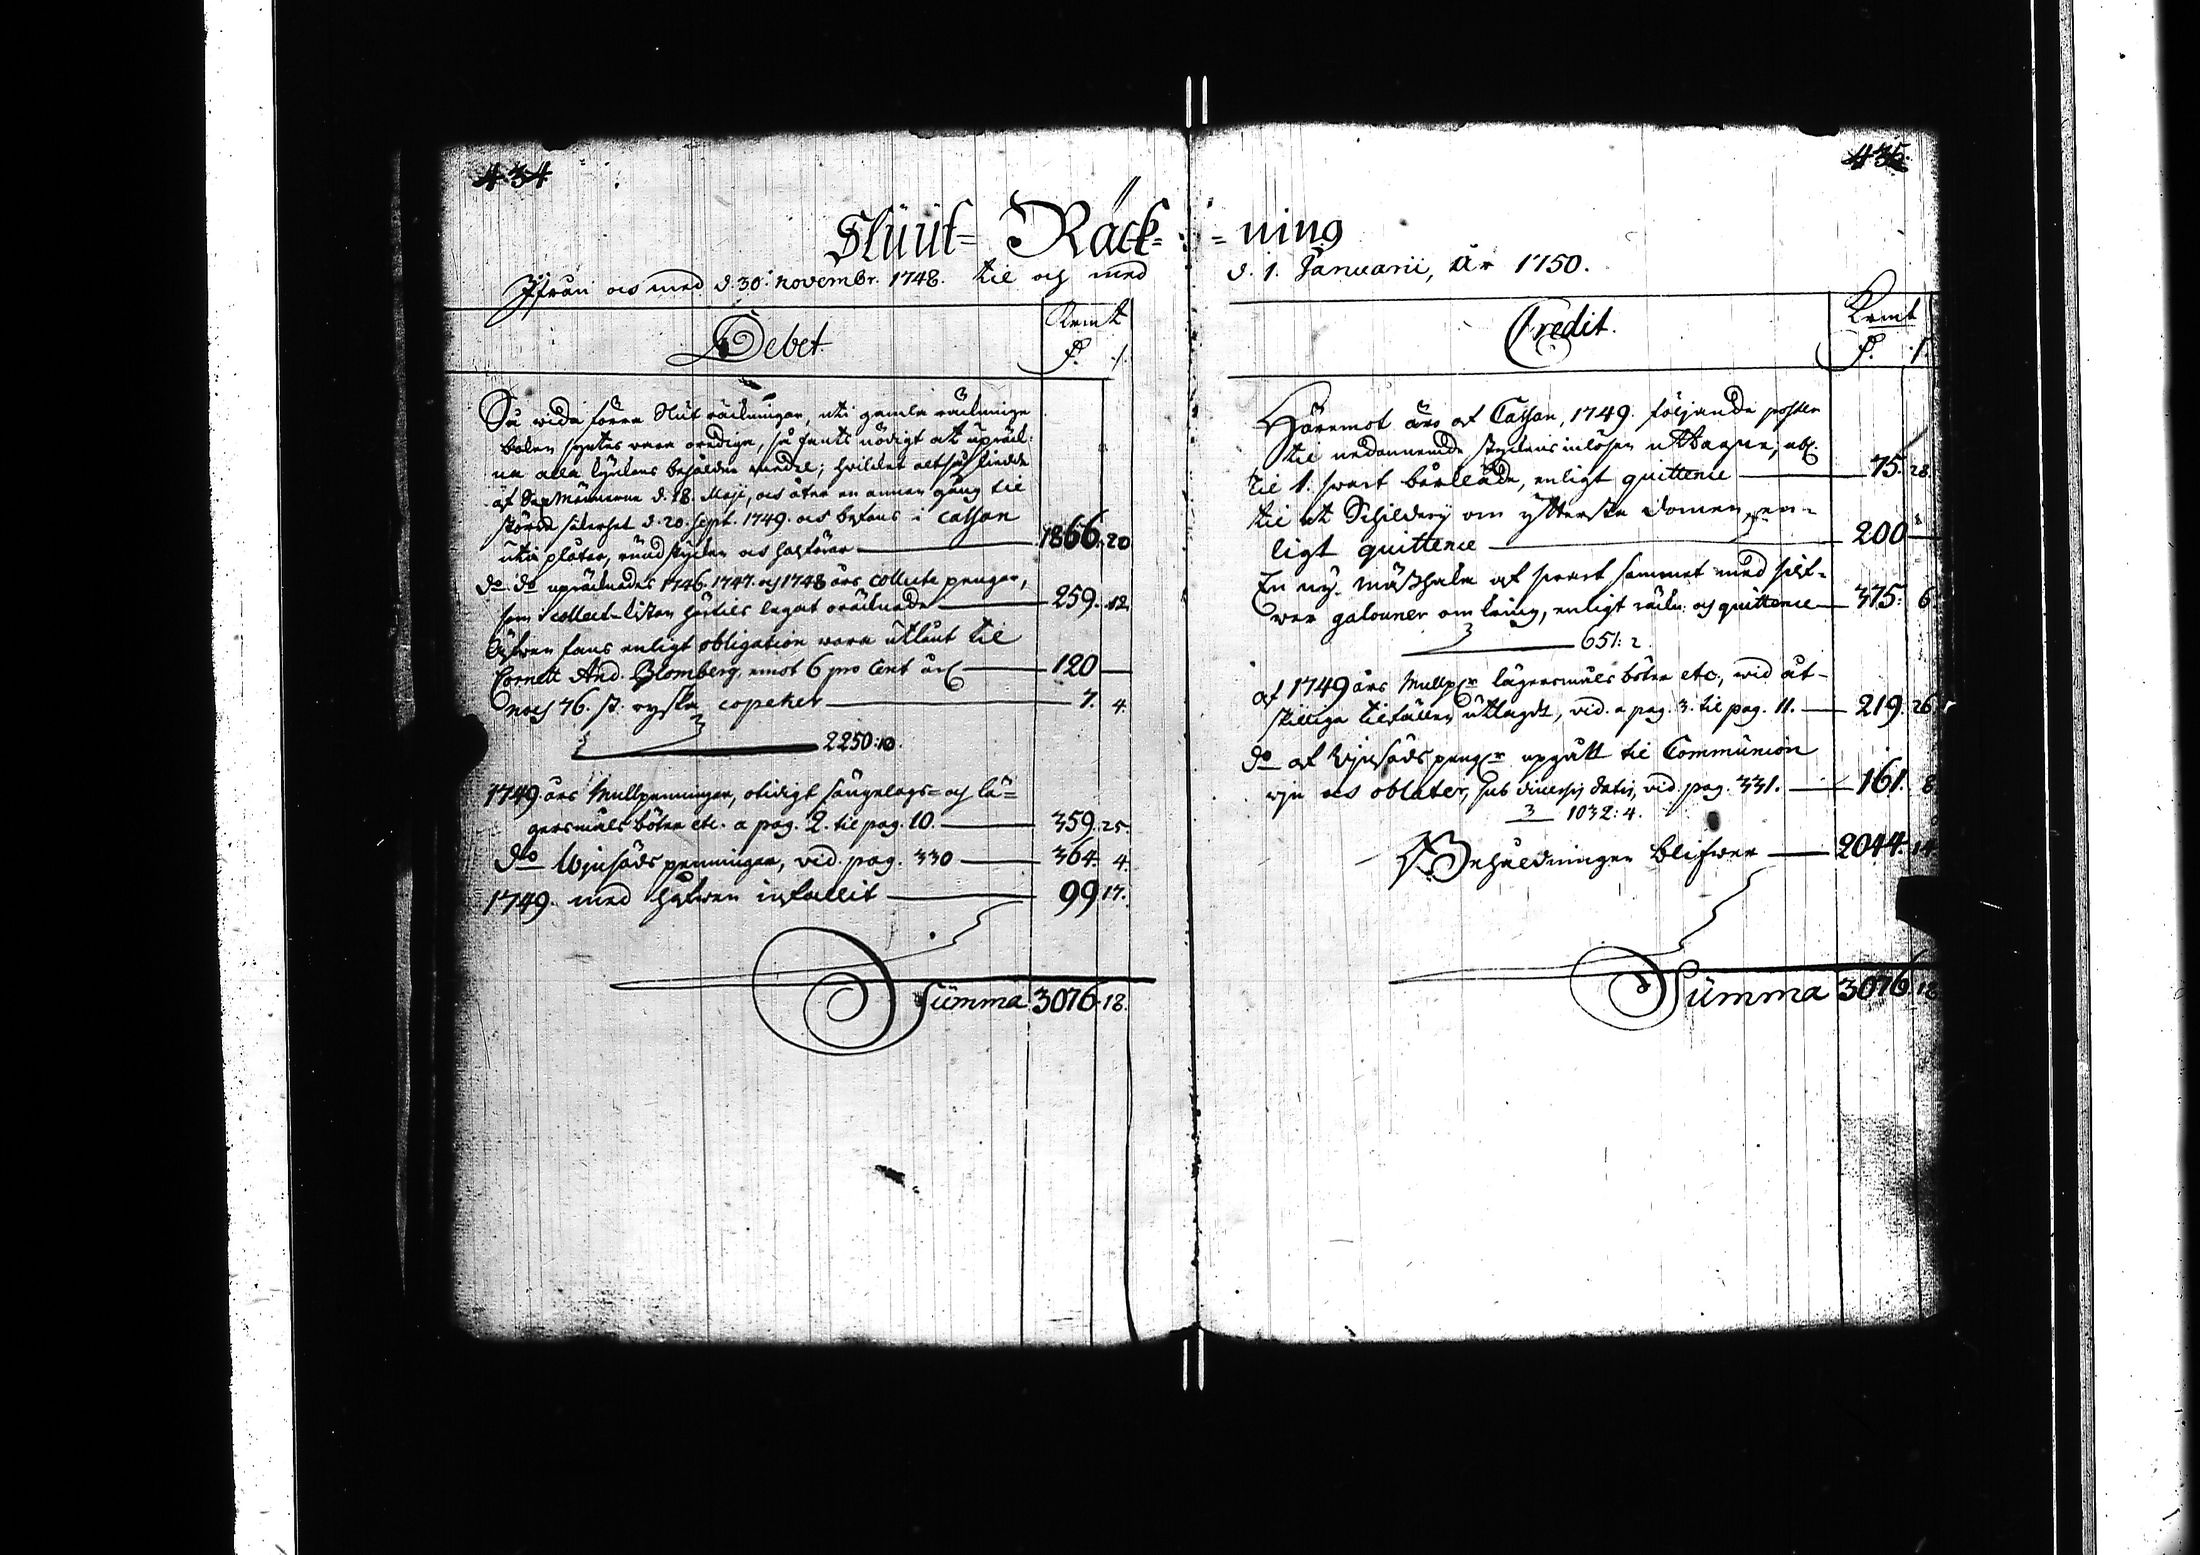 434
435
Slüüt= Räck= =ning
Ifrån och med d. 30. novembr. 1748. til och med d. 1. Januarii, År 1750.
Debet
Krmt
Så wida förra Slut räckningar, uti gamla räcknings
boken syntes vara oredige, så fants nödigt at upräck-
na alla Kyrckans behåldne medel; hvilcket altså skiedde
af Sexmännerne d. 18. Maji, och åter en annan gång til
större säkerhet d. 20. Sept. 1749. och befans i Cassan
uti plåtar, rundstycken och 1866. 20
do. do upräcknades 1746. 1747. och 1748 års Collecte pengar,
som i collect-kistan härtils legat oräcknade 259. 12.
Äfwen fans enligt obligation vara utlånt til
Cornett And. Blomberg, emot 6 pro Cent årl. 120 —
noch 76. st. ryska copeker 7. 4.
2250: 10.
1749 års Mullpenningar, otidigt sängelags- och lä=
gersmåls böter etc. a pag. 2. til pag. 10. 359. 25.
do Wijnsäds penningar, vid. pag. 330 364. 4.
1749. med håfwen infallit 99 17.
Summa 3076. 18.
Credit.
Krmt
Häremot äro af Cassan, 1749. följande poster
til nedannemde styckens inlösen uttagne, nbl.
til 1. swart bårkläde, enligt quittence 75. 28.
til et Schilderij om ytterste domen, en-
ligt quittence 200 —
En ny Mässhake af swart sammet med silf-
wer galouner omkring, enligt räckn. och quittence 375. 6.
651: 2.
af 1749 års Mullp:r lägersmåls böter etc., wid åt-
skillige tilfällen utlagdt, vid. a pag. 3. til pag. 11. 219. 26
do af Wijnsäds peng:r upgått til Communion
wijn och oblater, sub diversis datis, vid. pag. 331. 161. 8
1032: 4.
Behåldningen blifwer 2044. 14
Summa 3076. 18